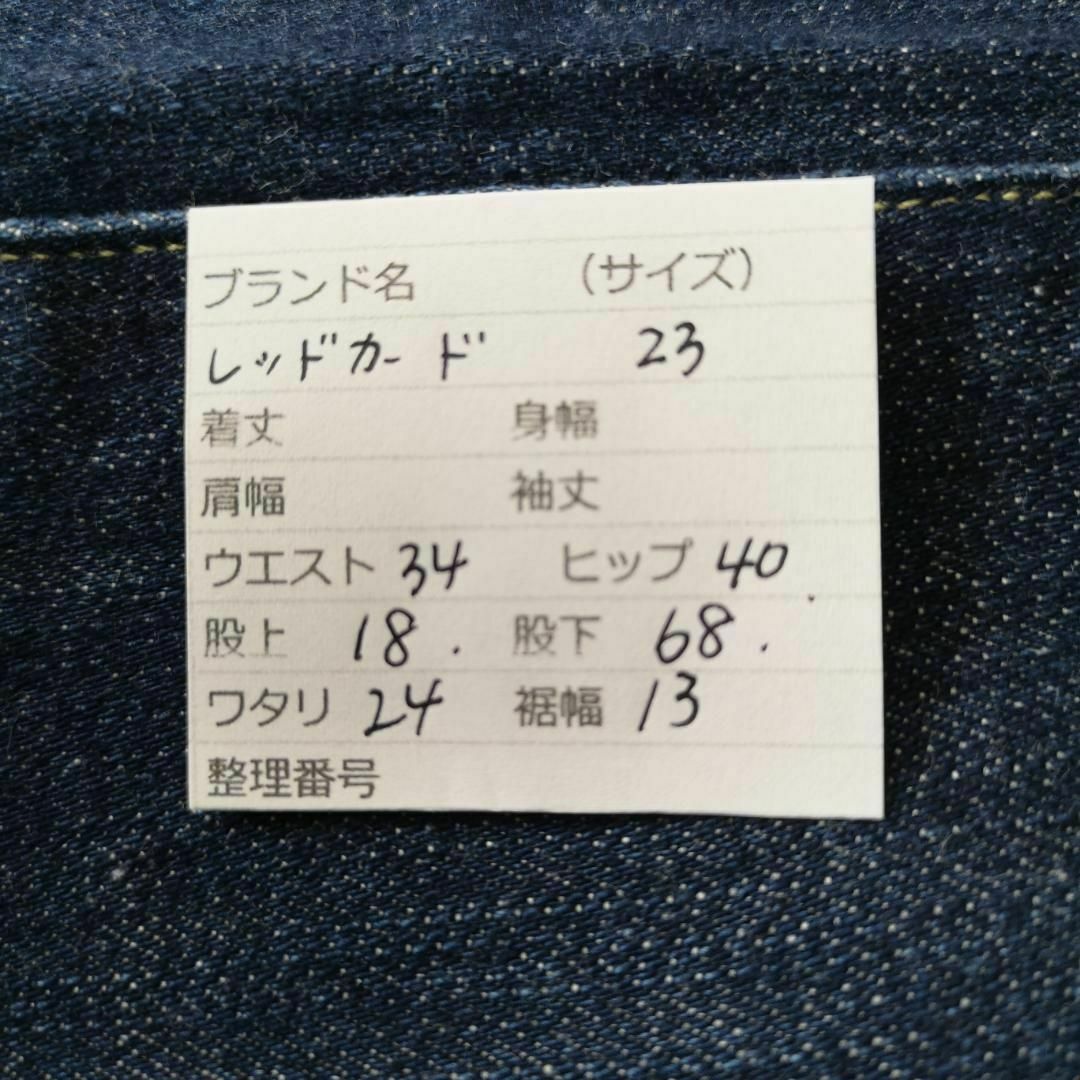 ブランド名 （サイズ）
レッドカード 23
着丈 身幅
肩幅 袖丈
ウエスト 34 ヒップ 40
股上 18. 股下 68.
ワタリ 24 裾幅 13
整理番号